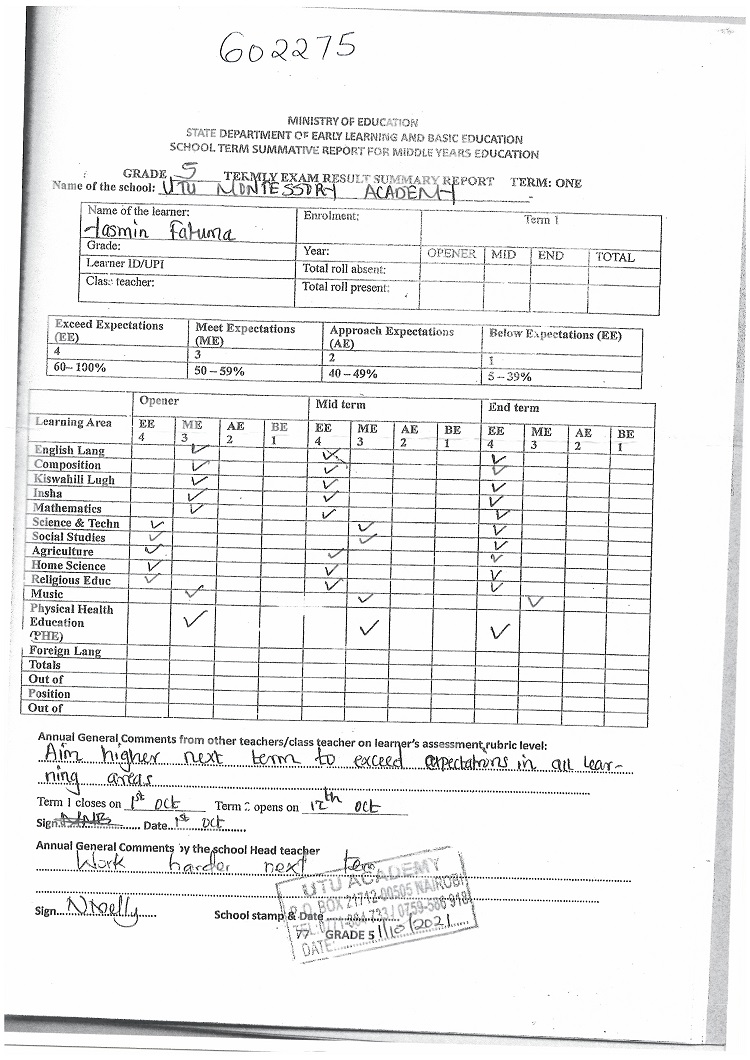 602275
MINISTRY OF EDUCATION
STATE DEPARTMENT OF EARLY LEARNING AND BASIC EDUCATION
SCHOOL TERM SUMMATIVE REPORT FOR MIDDLE YEARS EDUCATION
GRADE 5 TERMLY EXAM RESULT SUMMARY REPORT TERM: ONE
Name of the school: UTU MONTESSORY ACADEMY
Name of the learner: Enrolment: Term 1
Jasmin Fatuma
Grade: Year: OPENER MID END TOTAL
Learner ID/UPI Total roll absent:
Class teacher: Total roll present:
Exceed Expectations (EE) Meet Expectations (ME) Approach Expectations (AE) Below Expectations (EE)
4 3 2 1
60–100% 50 – 59% 40 – 49% 5 – 39%
Opener Mid term End term
Learning Area EE 4 ME 3 AE 2 BE 1 EE 4 ME 3 AE 2 BE 1 EE 4 ME 3 AE 2 BE 1
English Lang
Composition
Kiswahili Lugh
Insha
Mathematics
Science & Techn
Social Studies
Agriculture
Home Science
Religious Educ
Music
Physical Health
Education
(PHE)
Foreign Lang
Totals
Out of
Position
Out of
Annual General Comments from other teachers/class teacher on learner's assessment rubric level:
Aim higher next term to exceed expectations in all lear-
ning areas
Term 1 closes on 1st Oct Term 2 opens on 12th Oct
Sign Date 1st Oct
Annual General Comments by the school Head teacher
Work harder next term
Sign NMelly School stamp & Date
UTU ACADEMY
P.O. BOX 21712-00505 NAIROBI
GRADE 5 1/10/2021
DATE: